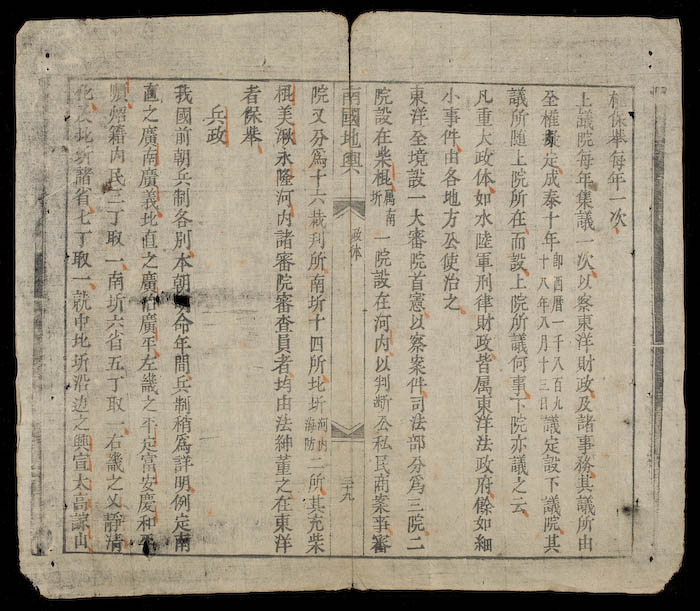 權保舉每年一次
上議院每年集議一次以察東洋財政及諸事務其議所由
全權定成泰十年卽西曆一千八百九十八年八月十三日議定設下議院其
議所随上院所在而設上院所議何事下院亦議之云
凡重大政体如水陸軍刑律財政皆属東洋法政府餘如細
小事件由各地方公使治之
東洋全境設一大審院首憲以察案件司法部分爲三院二
院設在柴棍属南圻一院設在河内以判断公私民商案事審
南國地輿
政体
三九
院又分爲十六裁判所南圻十四所北圻河内海防二所其充柴
棍美湫永隆河内諸審院審查員者均由法紳董之在東洋
者保舉
兵政
我國前朝兵制各別本朝明命年間兵制稍爲詳明例定南
直之廣南廣義北直之廣治廣平左畿之平定富安慶和平
順籍内民三丁取一南圻六省五丁取一右畿之乂靜清
化及北圻諸省七丁取一就中北圻沿边之興宣太高諒山